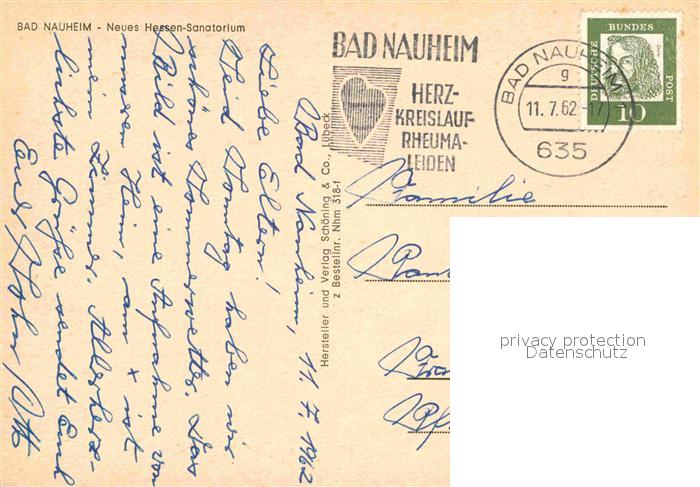 BAD NAUHEIM - Neues Hessen-Sanatorium
Bad Nauheim, 11.7.1962
Liebe Eltern!
Seid Sonntag haben wir
schönes Sommerwetter. Das
Bild ist eine Aufnahme von
unserem Heim, am x ist
mein Zimmer. Allerherz-
lichste Grüße sendet Euch
Euer Sohn Otto
Hersteller und Verlag Schöning & Co., Lübeck
z Bestellnr. Nhm 318-1
BAD NAUHEIM
HERZ-
KREISLAUF-
RHEUMA-
LEIDEN
BAD NAUHEIM
g
11.7.62.-17
635
DEUTSCHE
BUNDES
POST
10
Familie
privacy protection
Datenschutz